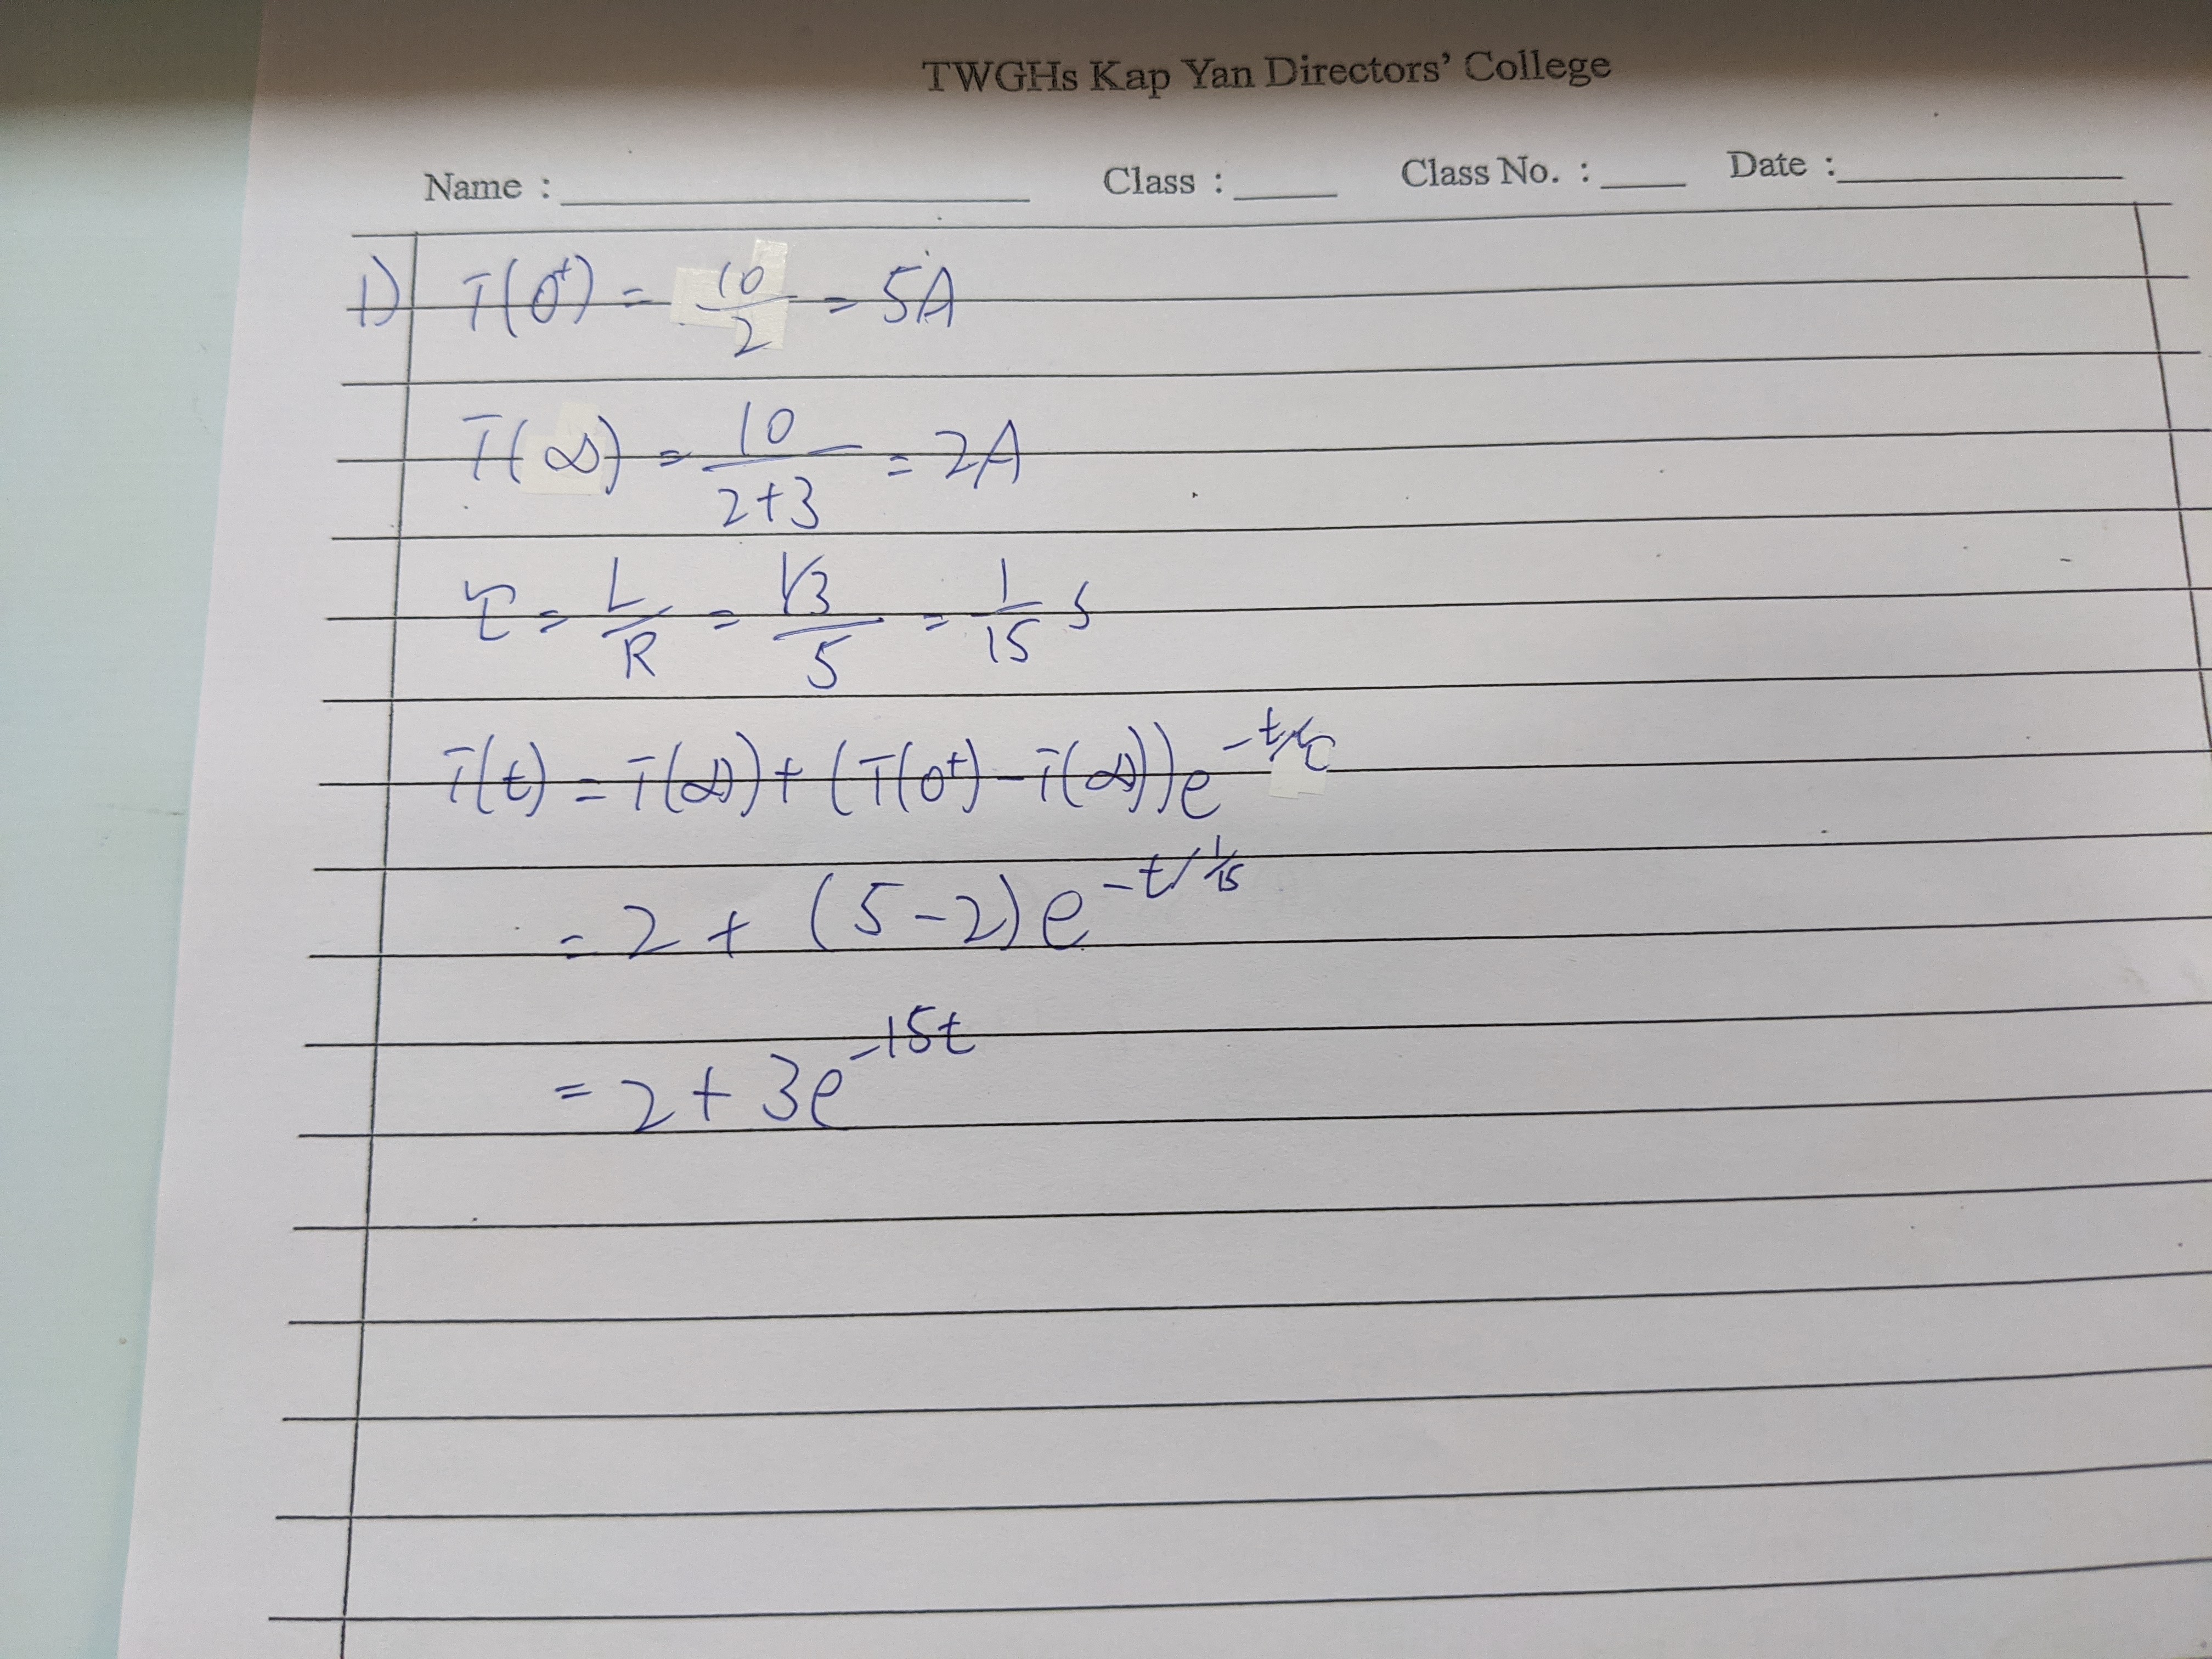 TWGHs Kap Yan Directors' College
Name : Class : Class No. : Date :
1) i(0⁺) = 10/2 = 5A
i(∞) = 10/(2+3) = 2A
τ = L/R = (1/3)/5 = 1/15 s
i(t) = i(∞) + (i(0⁺) - i(∞))e^(-t/τ)
= 2 + (5-2)e^(-t/(1/15))
= 2 + 3e^(-15t)